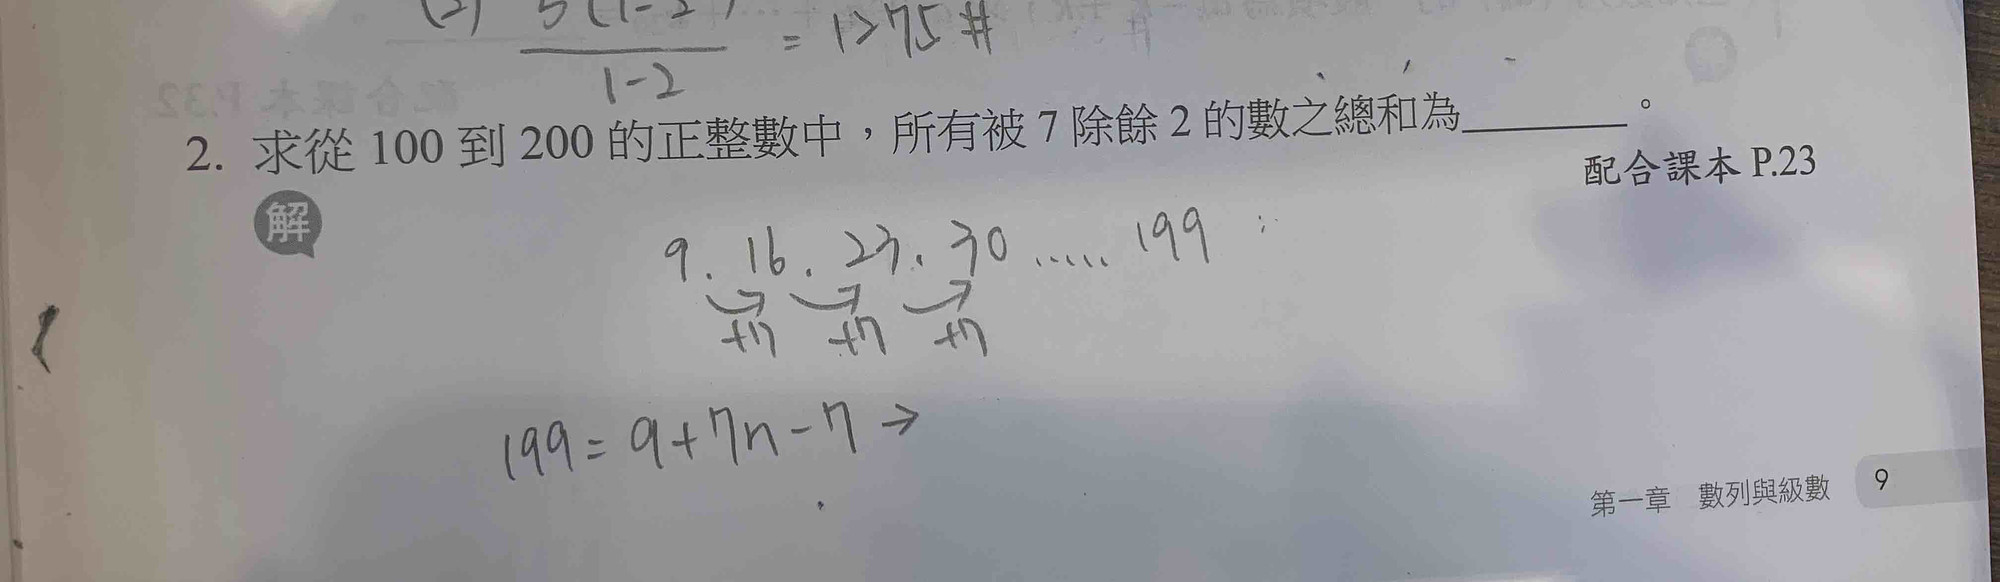 (2) 5(1-2
1-2
= 1275 #
2. 求從 100 到 200 的正整數中，所有被 7 除餘 2 的數之總和為________。
配合課本 P.23
解
9. 16. 23. 30 ..... 199
+7 +7 +7
199 = 9+7n-7 →
第一章 數列與級數 9